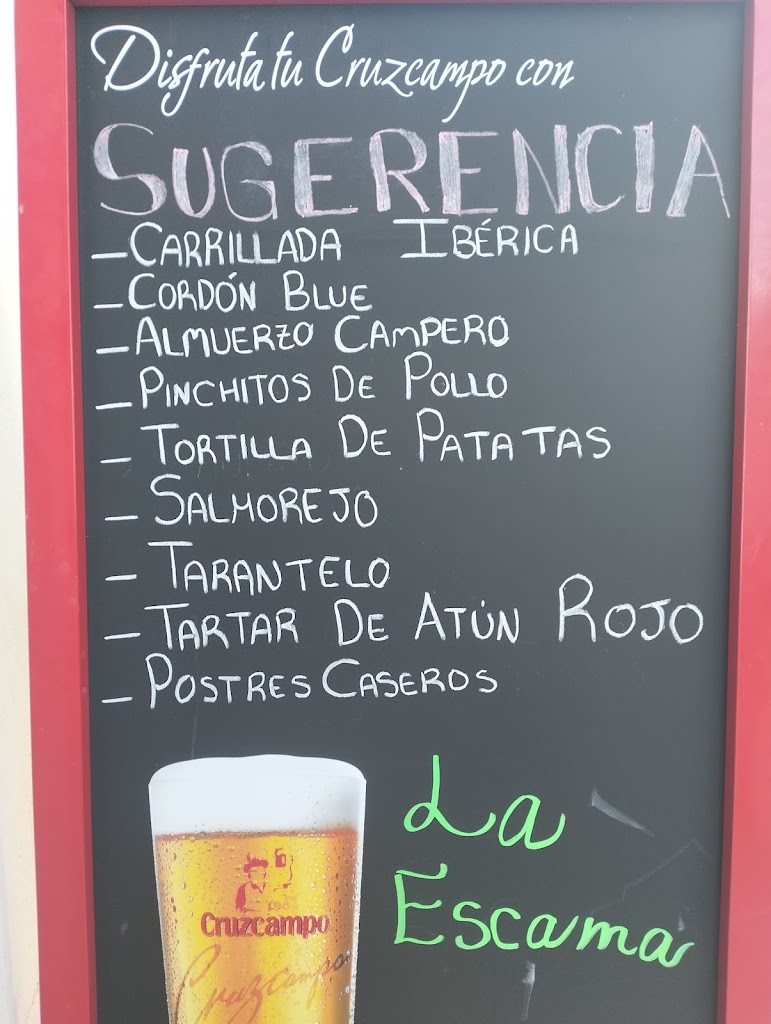 Disfruta tu Cruzcampo con
SUGERENCIA
- CARRILLADA IBÉRICA
- CORDÓN BLUE
- ALMUERZO CAMPERO
- PINCHITOS DE POLLO
- TORTILLA DE PATATAS
- SALMOREJO
- TARANTELO
- TARTAR DE ATÚN ROJO
- POSTRES CASEROS
La
Escama
Cruzcampo
Cruzcampo